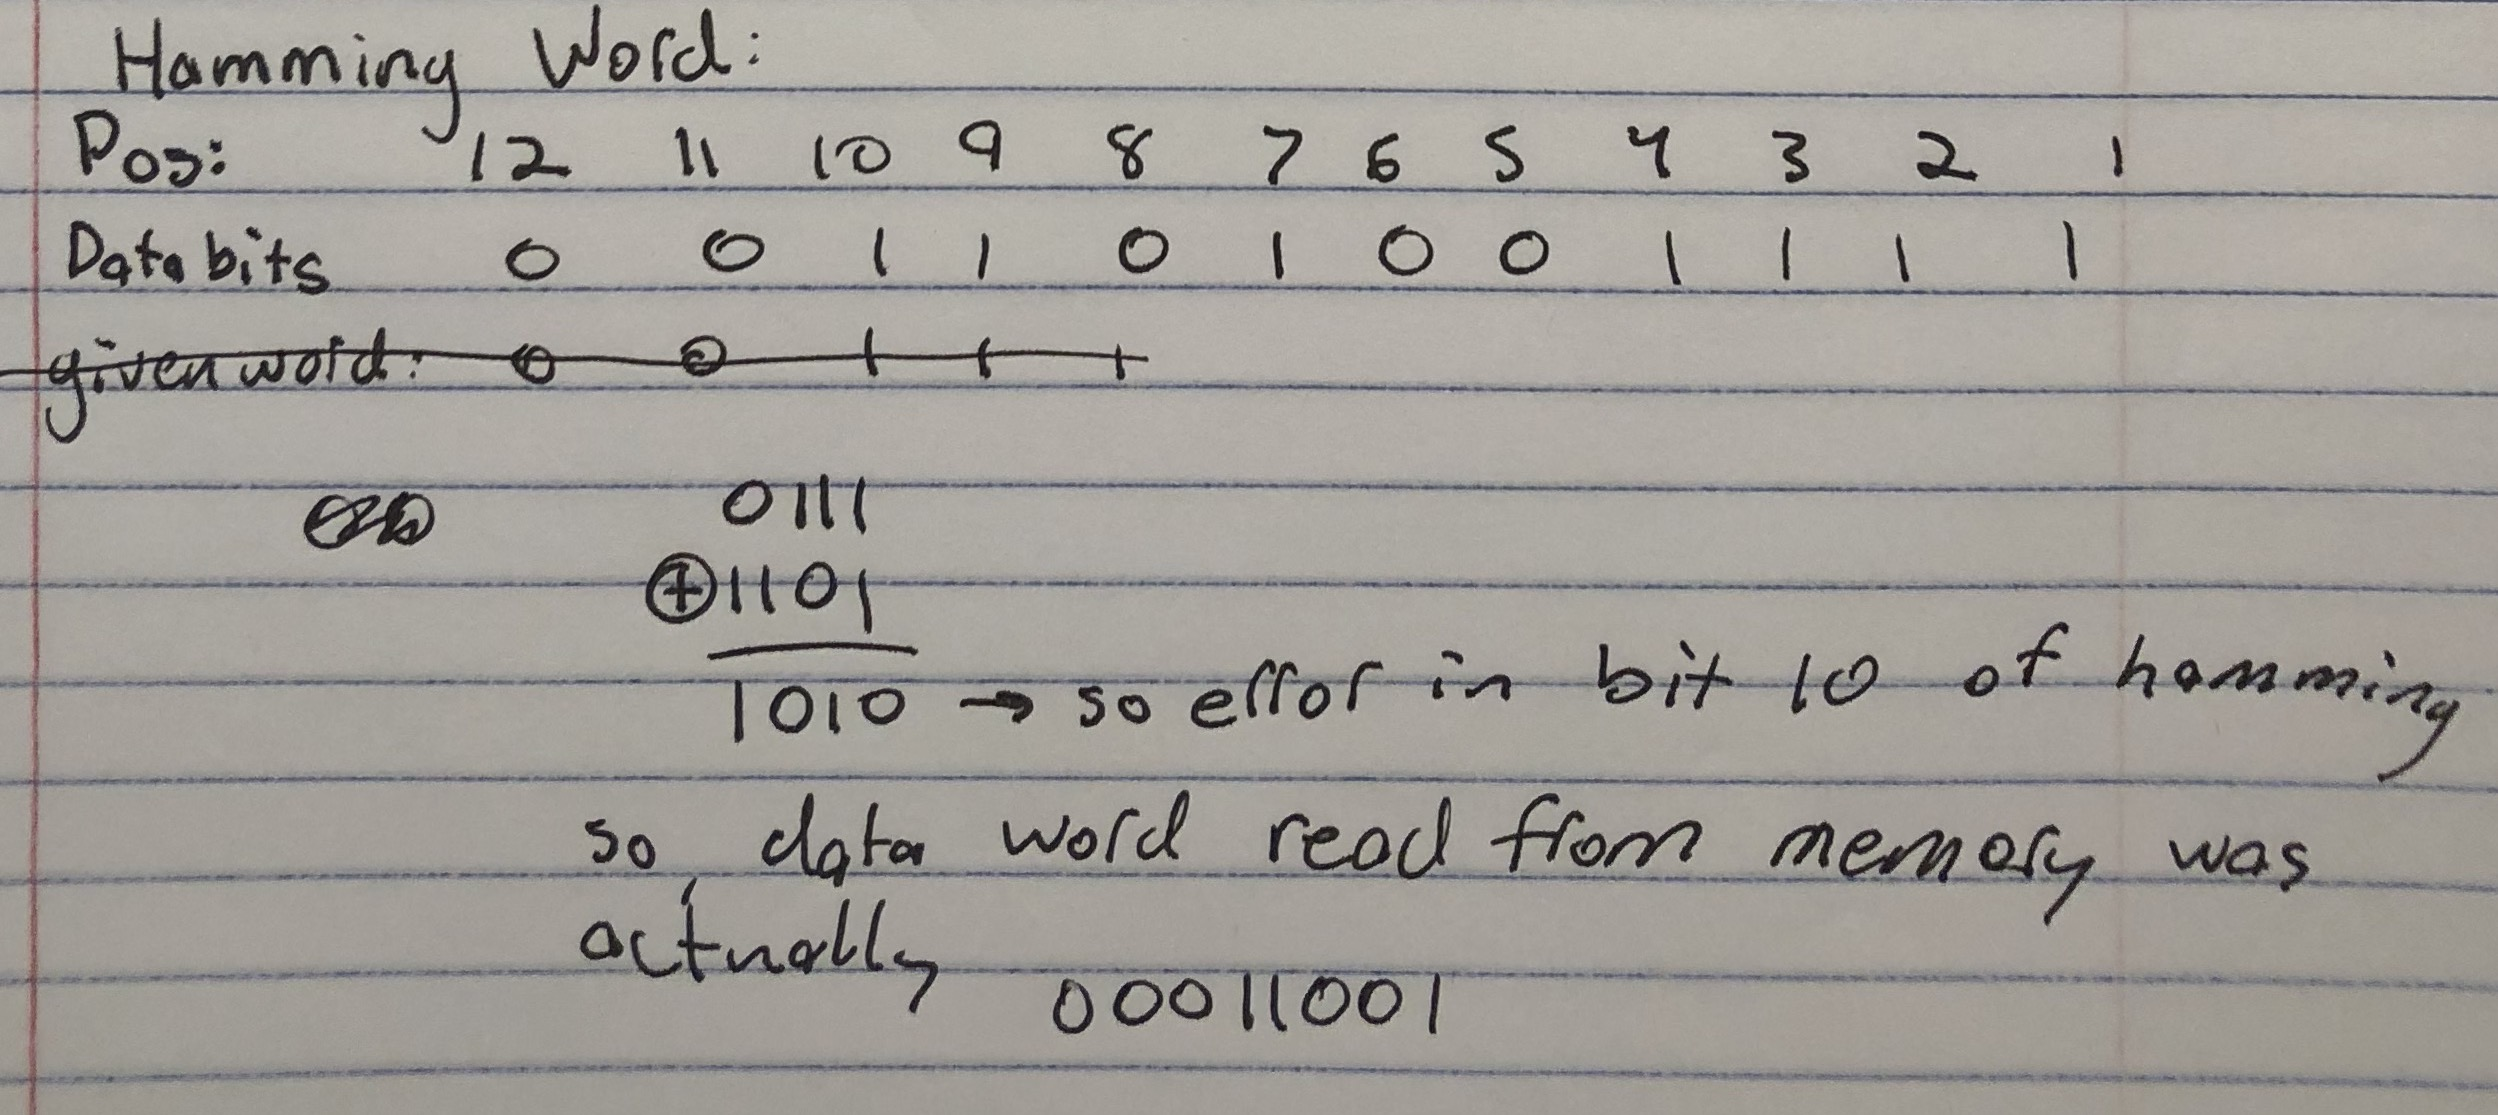 Hamming Word:
Pos: 12 11 10 9 8 7 6 5 4 3 2 1
Data bits 0 0 1 1 0 1 0 0 1 1 1 1
given word: 0 0 1 1 1
0111
⊕1101
1010 → so error in bit 10 of hamming
so, data word read from memory was
actually 00011001